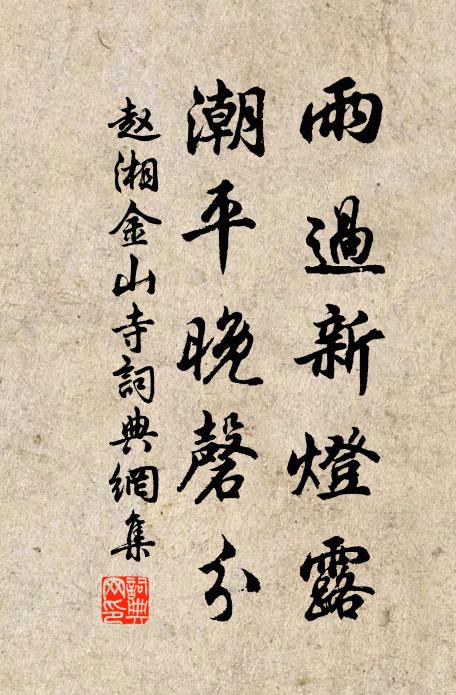 雨過新燈露
潮平晚磬分
赵湘金山寺詞典網集
詞典网印